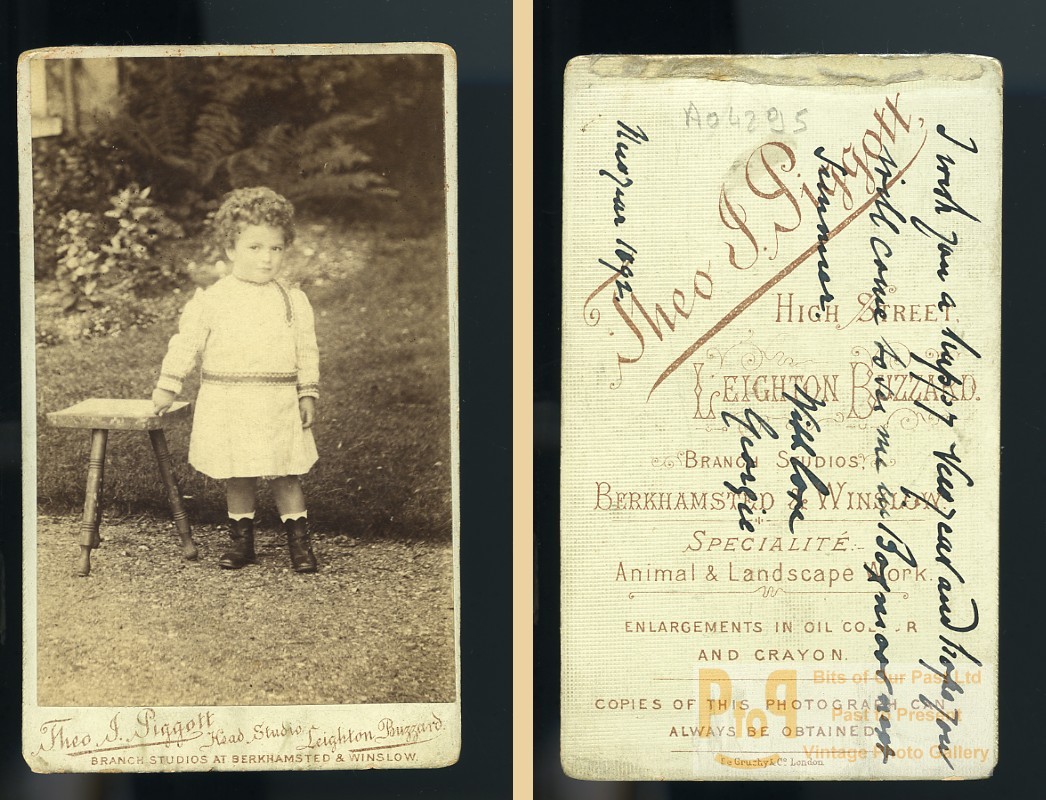 Theo J. Piggott Head Studio Leighton Buzzard.
BRANCH STUDIOS AT BERKHAMSTED & WINSLOW.
A04295
Theo J. Piggott,
HIGH STREET,
LEIGHTON BUZZARD.
BRANCH STUDIOS,
BERKHAMSTED & WINSLOW.
SPECIALITÉ:-
Animal & Landscape Work.
ENLARGEMENTS IN OIL COLOUR
AND CRAYON.
COPIES OF THIS PHOTOGRAPH CAN
ALWAYS BE OBTAINED
De Gruchy & Co. London.
I wish you a happy New year and hope you
will come to see me in
Summer.
With love
Georgie
New year 1892
PtoP
Bits of Our Past Ltd
Past to Present
Vintage Photo Gallery